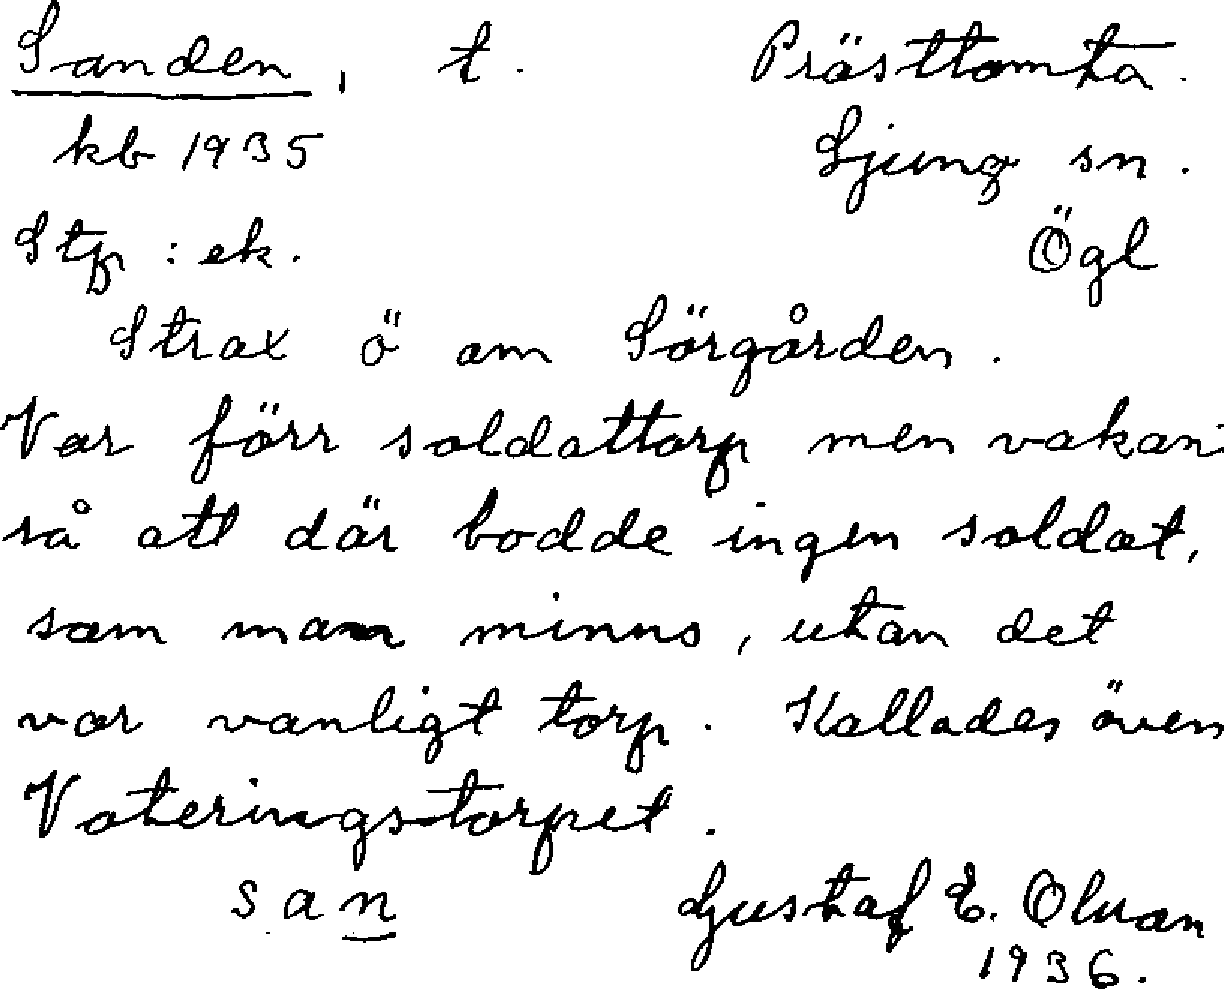 Sanden, t. Prästtomta.
kb 1935 Ljung sn.
Stfp : ek. Ögl
Strax ö om Sörgården.
Var förr soldattorp men vakans
så att där bodde ingen soldat,
som man minns, utan det
var vanligt torp. Kallades även
Voteringstorpet.
san Gustaf E. Olsson
1936.